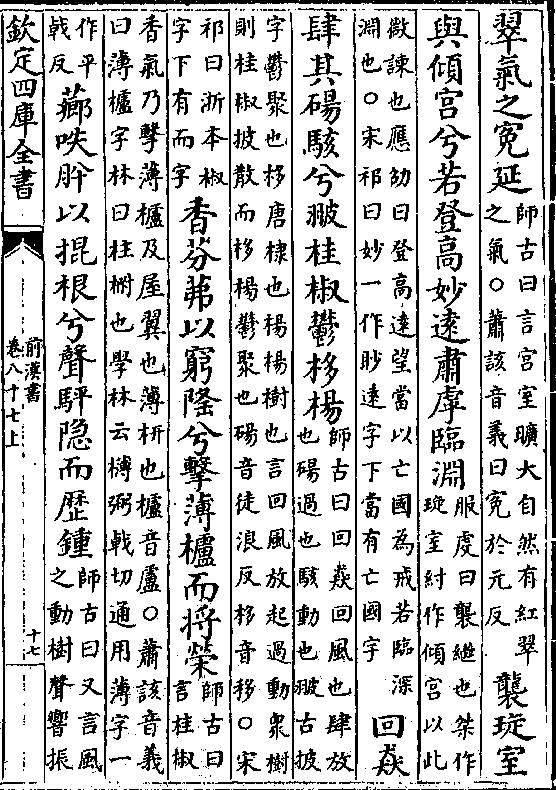 翠氣之冤延師古曰言宮室曠大自然有紅翠之氣○蕭該音義曰冤於元反襲琁室
與傾宮兮若登高妙遠肅虖臨淵服虔曰襲繼也桀作琁室紂作傾宮以此
微諫也應劭曰登高遠望當以亡國為戒若臨深淵也○宋祁曰妙一作眇遠字下當有亡國字回猋
肆其碭駭兮翍桂椒鬱栘楊師古曰回猋回風也肆放也碭過也駭動也翍古披
字鬱聚也栘唐棣也楊楊樹也言回風放起過動衆樹則桂椒披散而栘楊鬱聚也碭音徒浪反栘音移○宋
祁曰浙本椒字下有而字香芬茀以窮隆兮擊薄櫨而將榮師古曰言桂椒
香氣乃擊薄櫨及屋翼也薄枅也櫨音盧○蕭該音義曰薄櫨字林曰柱枅也學林云欂弼戟切通用薄字一
作平戟反薌呹肸以掍根兮聲駍隐而歴鍾師古曰又言風之動樹聲響振
欽定四庫全書
前漢書
卷八十七上
十七